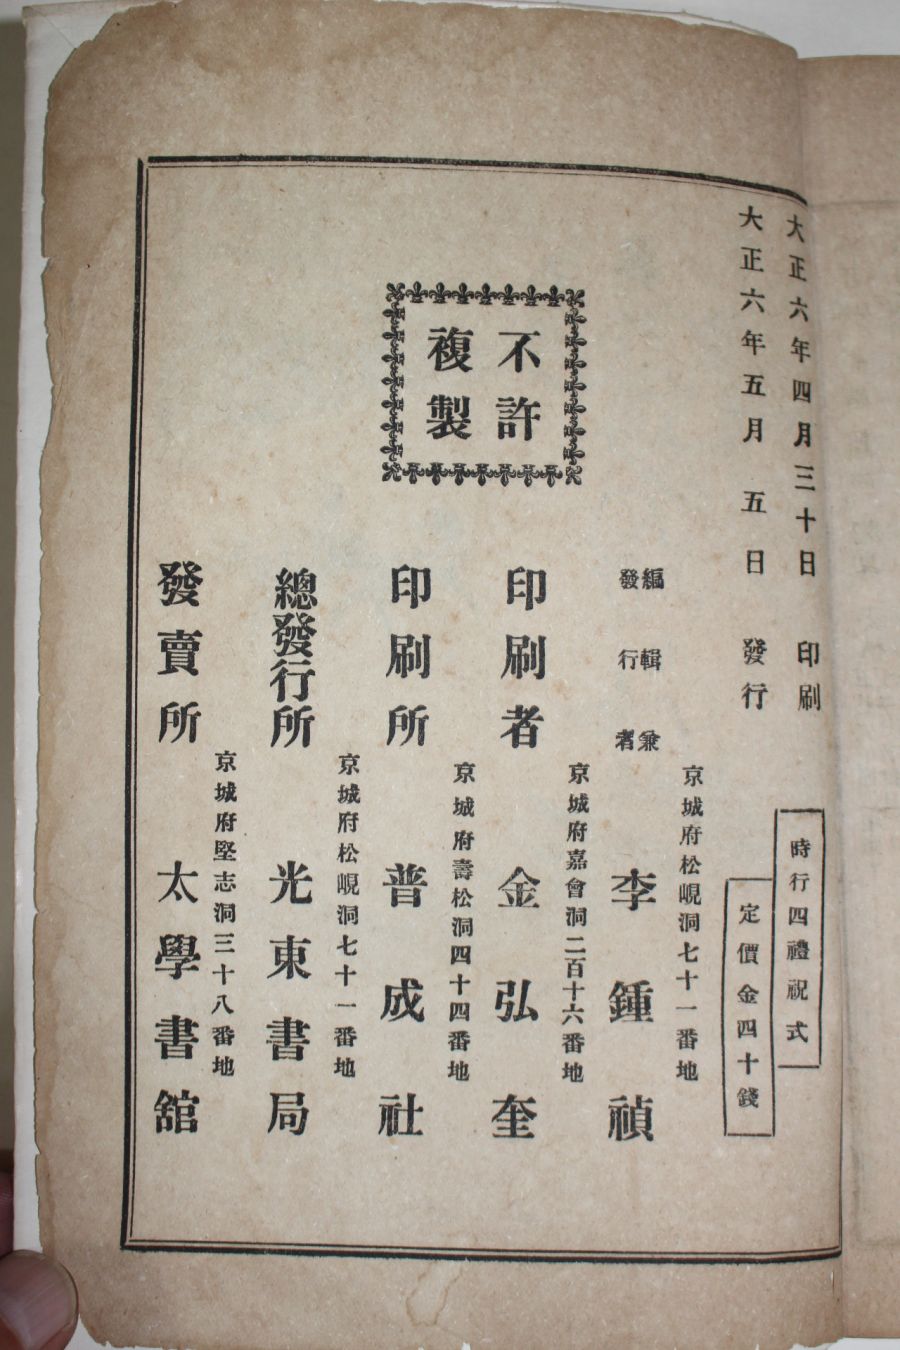 大正六年四月三十日 印刷
大正六年五月 五日 發行
時行四禮祝式
定價金四十錢
不許
複製
京城府松峴洞七十一番地
編輯兼
發行者
李鍾禎
京城府嘉會洞二百十六番地
印刷者 金弘奎
京城府壽松洞四十四番地
印刷所 普成社
京城府松峴洞七十一番地
總發行所 光東書局
京城府堅志洞三十八番地
發賣所 太學書舘